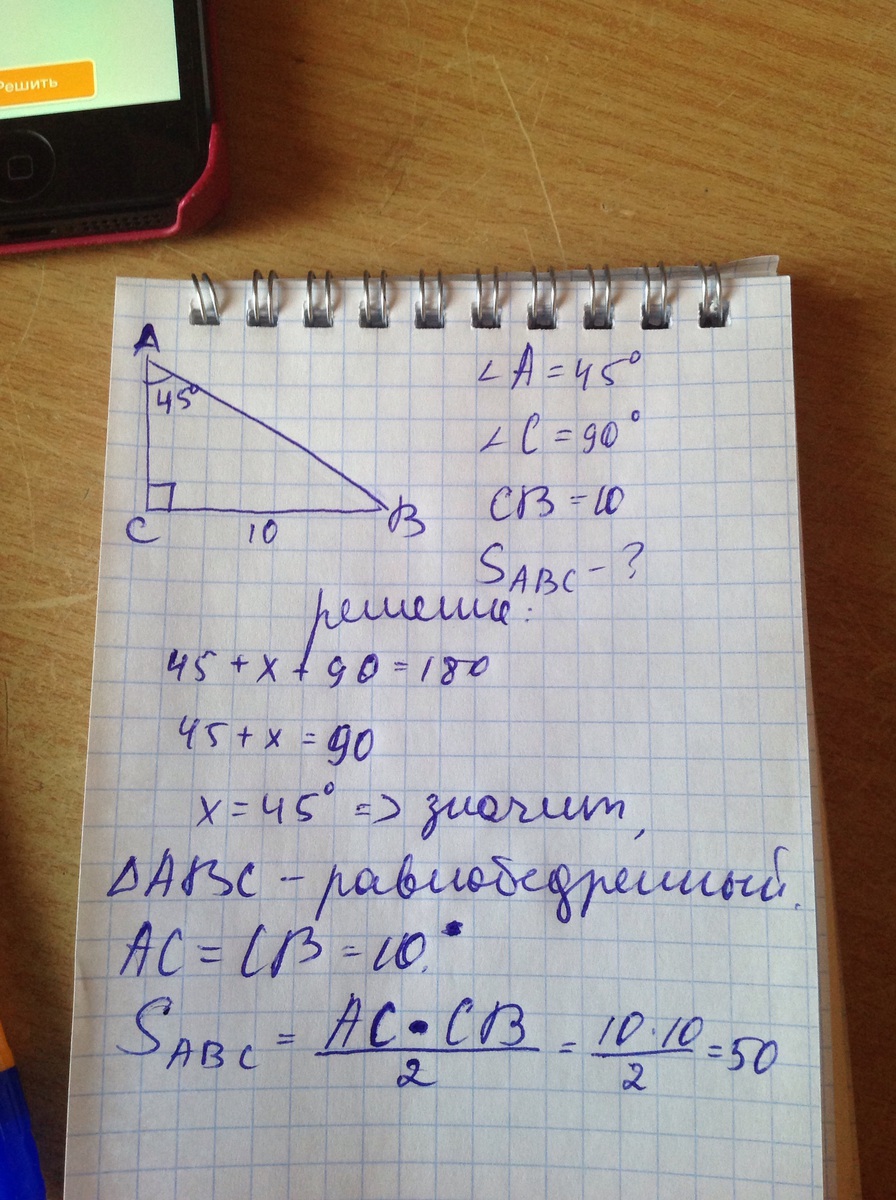 Решить
A
45°
C
10
B
∠A = 45°
∠C = 90°
CB = 10
S_ABC - ?
решение:
45 + x + 90 = 180
45 + x = 90
x = 45° => значит,
△ABC - равнобедренный.
AC = CB = 10.
S_ABC = (AC · CB)/2 = (10 · 10)/2 = 50